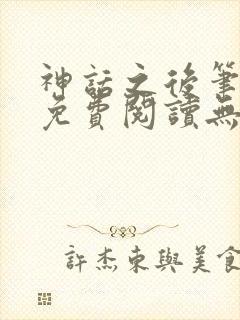 神話之後筆
免費閱讀無
許杰東與美食